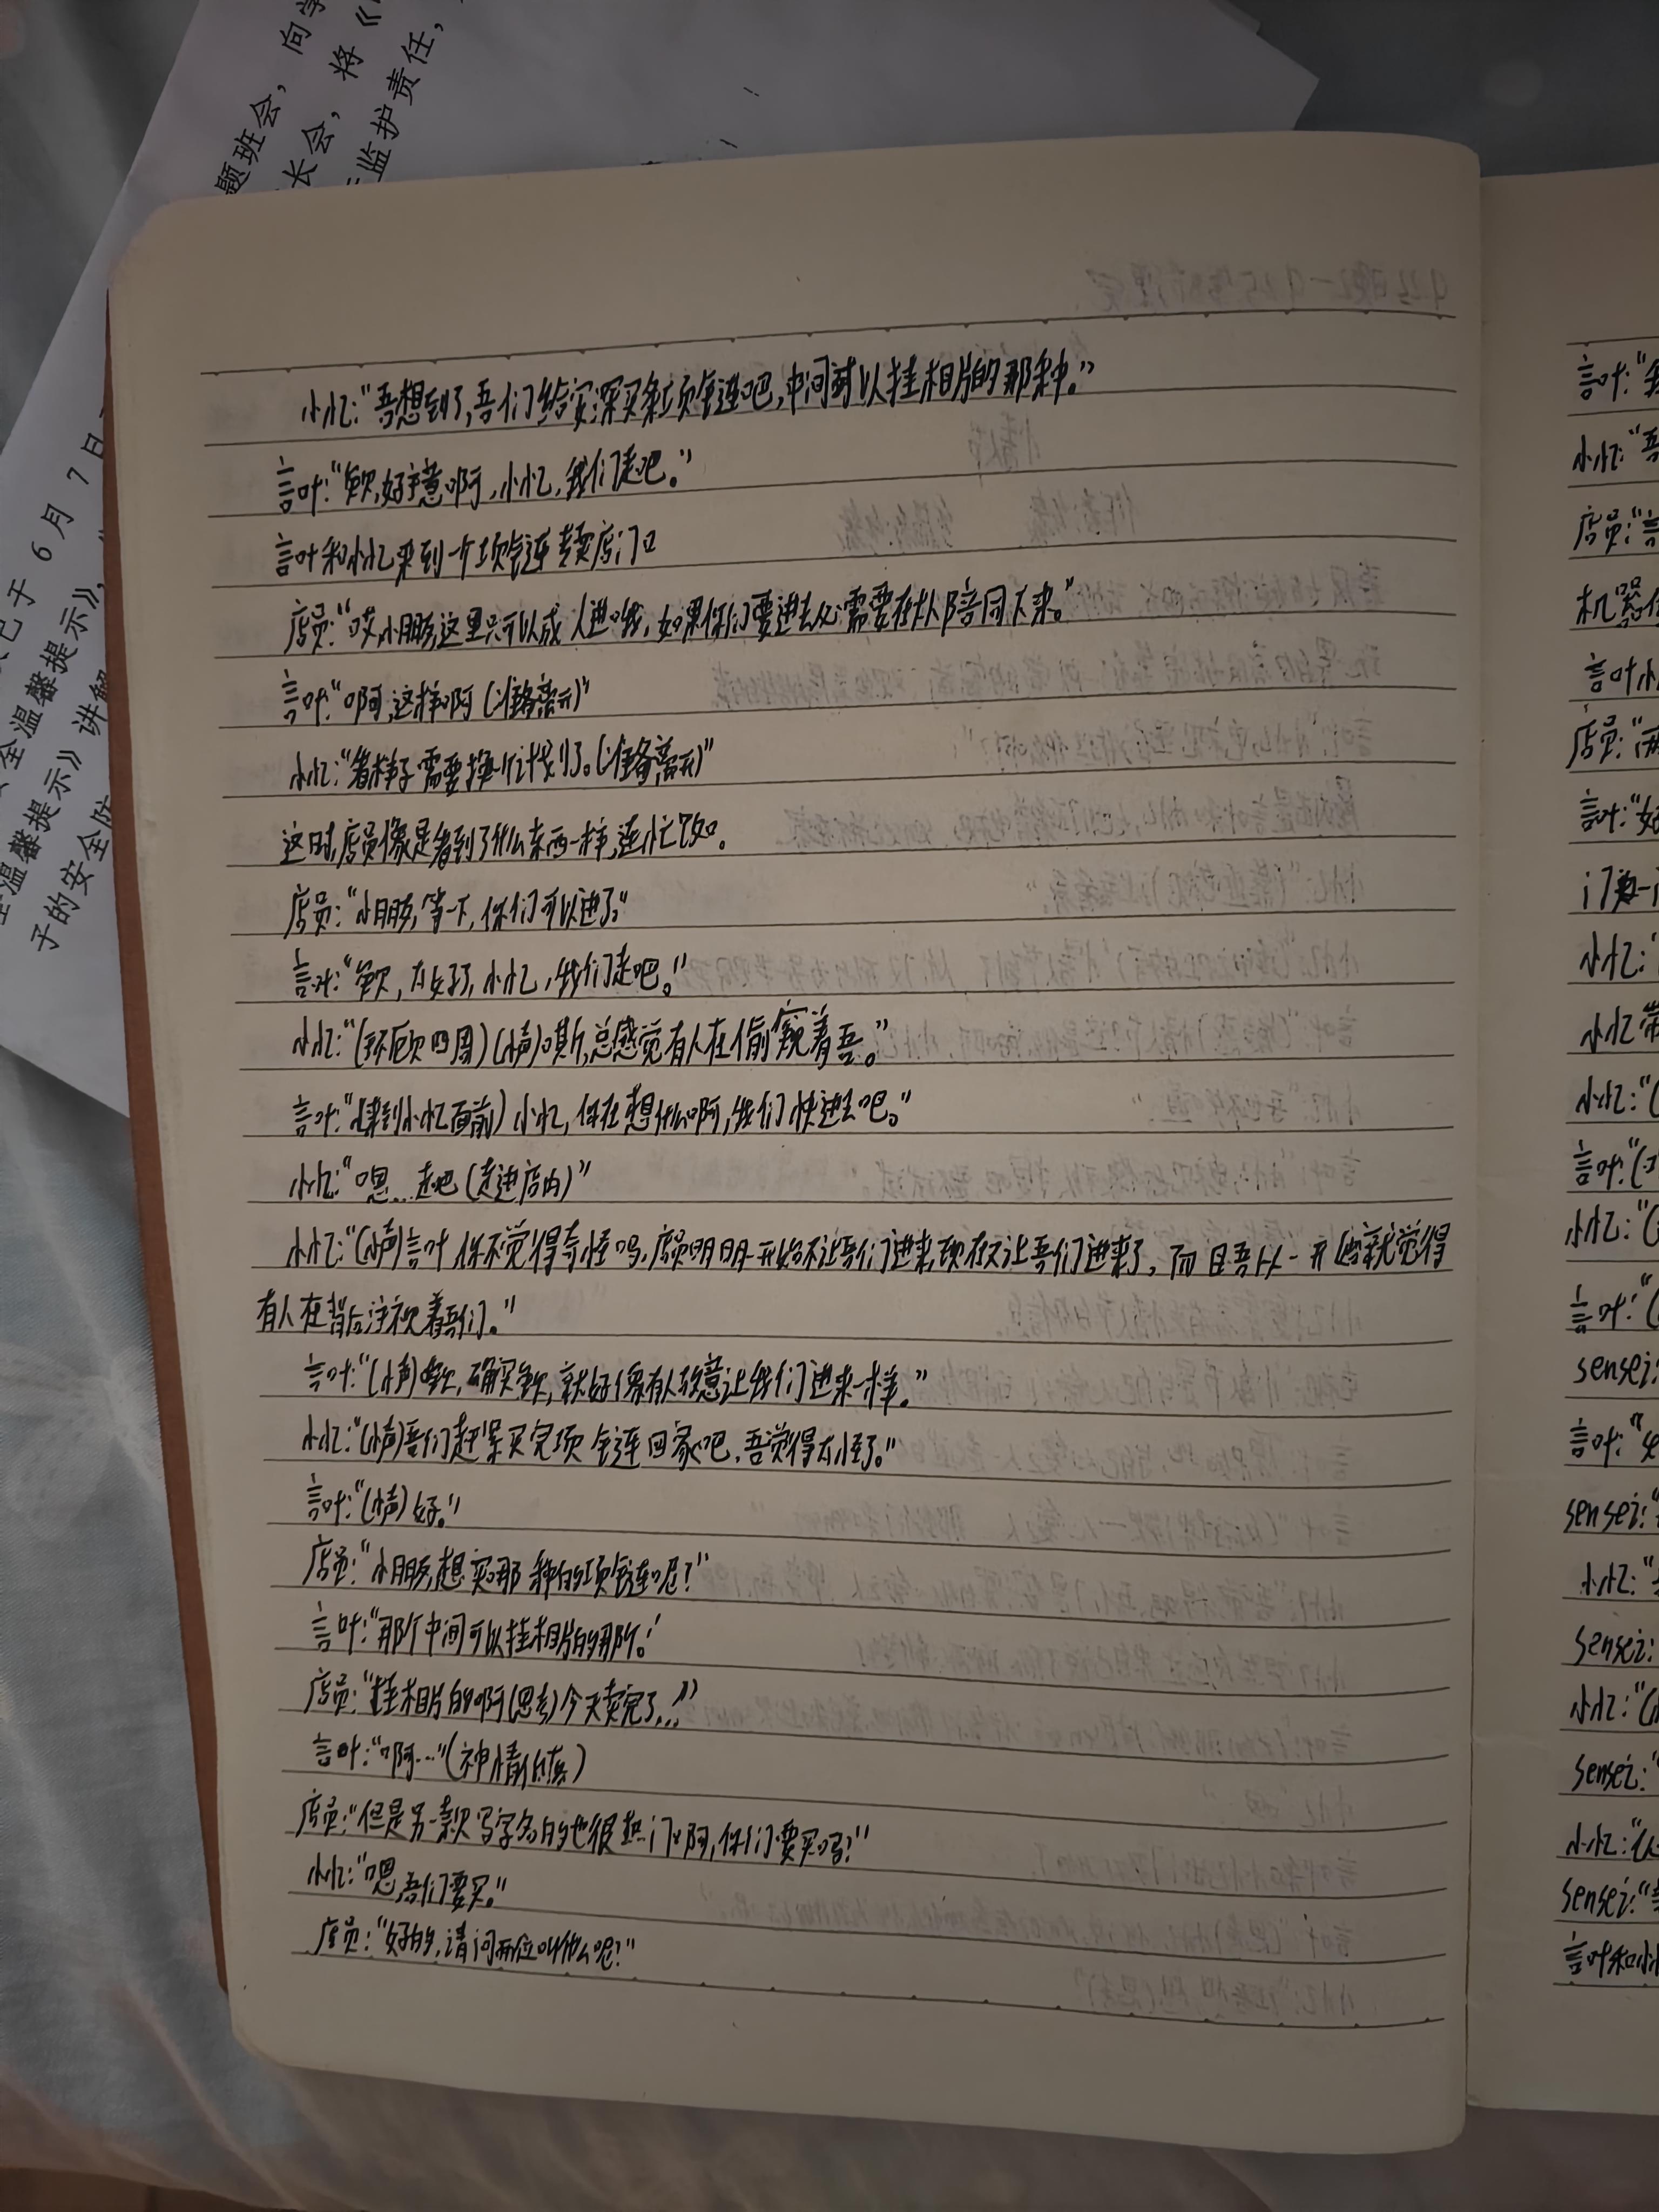 题班会，向学
长会，将《
监护责任，
已于6月7日
全温馨提示》，
温馨提示》讲解
子的安全防
小忆：“吾想到了，吾们给安深买条项链吧，中间可以挂相片的那种。”
言叶：“欸，好主意啊，小忆，我们走吧。”
言叶和小忆来到一个项链专卖店门口
店员：“哎小朋友，这里只可以成人进哦，如果你们要进去必需要在大人陪同下来。”
言叶：“啊，这样啊（准备离开）”
小忆：“看样子需要换个计划了。（准备离开）”
这时，店员像是看到了什么东西一样，连忙改口。
店员：“小朋友，等一下，你们可以进了。”
言叶：“欸，太好了，小忆，我们走吧。”
小忆：“（环顾四周）（小声）嘶，总感觉有人在偷窥着吾。”
言叶：“（来到小忆面前）小忆，你在想什么啊，我们快进去吧。”
小忆：“嗯…走吧（走进店内）”
小忆：“（小声）言叶你不觉得奇怪吗，店员明明一开始不让吾们进来，现在又让吾们进来了，而且吾从一开始就觉得
有人在背后注视着吾们。”
言叶：“（小声）欸，确实欸，就好像有人故意让我们进来一样。”
小忆：“（小声）吾们赶紧买完项链回家吧，吾觉得太怪了。”
言叶：“（小声）好。”
店员：“小朋友，想买哪种的项链呢？”
言叶：“那个中间可以挂相片的那个。”
店员：“挂相片的啊（思考）今天卖完了…”
言叶：“啊…”（神情低落）
店员：“但是另一款写字名的也很热门啊，你们要买吗？”
小忆：“嗯，吾们要买。”
店员：“好的，请问两位叫什么呢？”
言叶：“
小忆：“吾
店员：“
机器
言叶小
店员：“
言叶：“好
门
小忆：“
小忆
小忆：“（
言叶：“（
小忆：“（
言叶：“（
sensei：
言叶：“
sensei：“
小忆：“
sensei：
小忆：“（
sensei：“
小忆：“
sensei：“
言叶和小